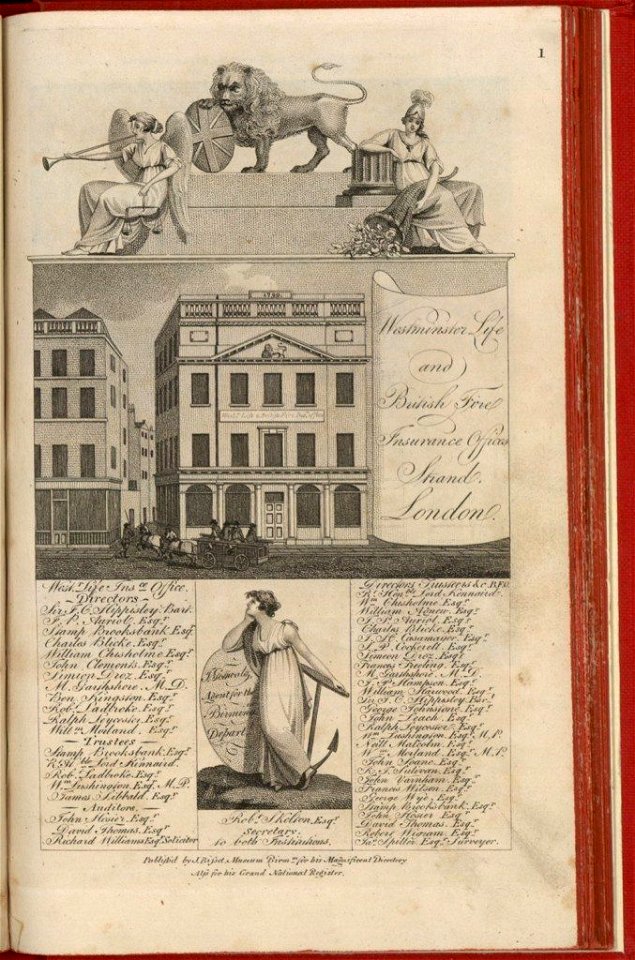 1
1799
Westminster Life
and
British Fire
Insurance Offices
Strand.
London.
Westr. Life Insce. Office.
Directors
Sir J. C. Hippisley Bart.
J. P. Auriol Esqr.
Stamp Brooksbank Esqr.
Charles Blicke Esqr.
William Chisholme Esqr.
John Clements Esqr.
Simeon Droz Esqr.
M. Garthshore M. D.
Ben. Kingston Esqr.
Rob. Ladbroke Esqr.
Ralph Leycester Esqr.
Willm. Morland Esqr.
Trustees
Stamp Brooksbank Esqr.
Rt. Honble. Lord Kinnaird.
Robt. Ladbroke Esqr.
Wm. Lushington Esqr. M. P.
James Sibbald Esqr.
Auditors.
John Hosier Esqr.
David Thomas Esqr.
Richard Williams Esqr. Solicitor
Agent for the
Departt.
Robt. Skelson Esqr.
Secretary
to both Institutions.
Directors Trustees &c. B.F.O.
Rt. Honble. Lord Kennaird.
Wm. Chisholme Esqr.
William Agnew Esqr.
J. P. Auriol Esqr.
Charles Blicke Esqr.
J. H. Casamajor Esqr.
S. P. Cockerell Esqr.
Simeon Droz Esqr.
Francis Freeling Esqr.
M. Garthshore M. D.
J. P. Hampson Esqr.
William Harwood Esqr.
Sir J. C. Hippisley Bar.
George Johnstone Esqr.
John Leach Esqr.
Ralph Leycester Esqr.
Wm. Lushington Esqr. M. P.
Neill Malcolm Esqr.
Wm. Morland Esqr. M. P.
John Soane Esqr.
R. J. Sulivan Esqr.
John Varnham Esqr.
Francis Wilson Esqr.
George Wye Esqr.
Stamp Brooksbank Esqr.
John Hosier Esqr.
David Thomas Esqr.
Robert Wigram Esqr.
Jas. Spiller Esqr. Surveyor.
Publish'd by J. Bisset, Museum Birmm. for his Magnificent Directory
Also for his Grand National Register.